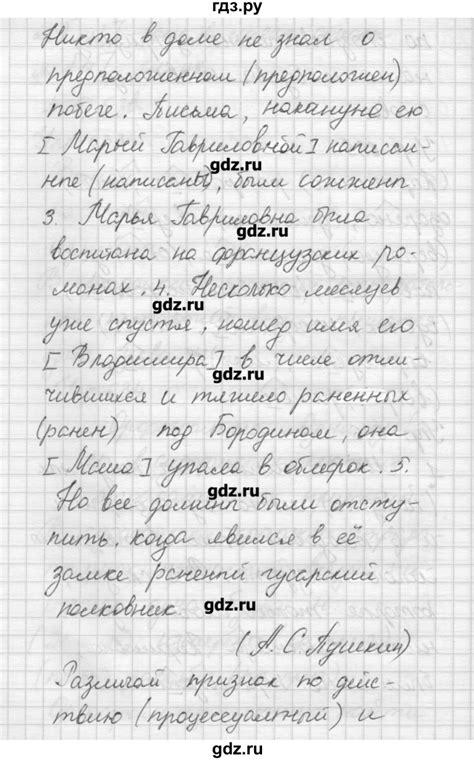 гдз.ру
Никто в доме не знал о
предположенном (предположен)
побеге. Письма, накануне ею
gdz.ru
[Марьей Гавриловной] написан-
gdz.ru
нье (написаны), были сожжены
3. Марья Гавриловна была
gdz.ru
воспитана на французских ро-
манах. 4. Несколько месяцев
gdz.ru
уже спустя, нашед имя его
[Владимира] в числе отли-
gdz.ru
чившихся и тяжело раненных
(ранен) под Бородином, она
[Маша] упала в обморок. 5.
gdz.ru
Но все должны были отсту-
пить, когда явился в её
gdz.ru
замке раненый гусарский
полковник
gdz.ru
(А. С. Пушкин)
gdz.ru
Различай признак по дейс-
твию (процессуальный) и